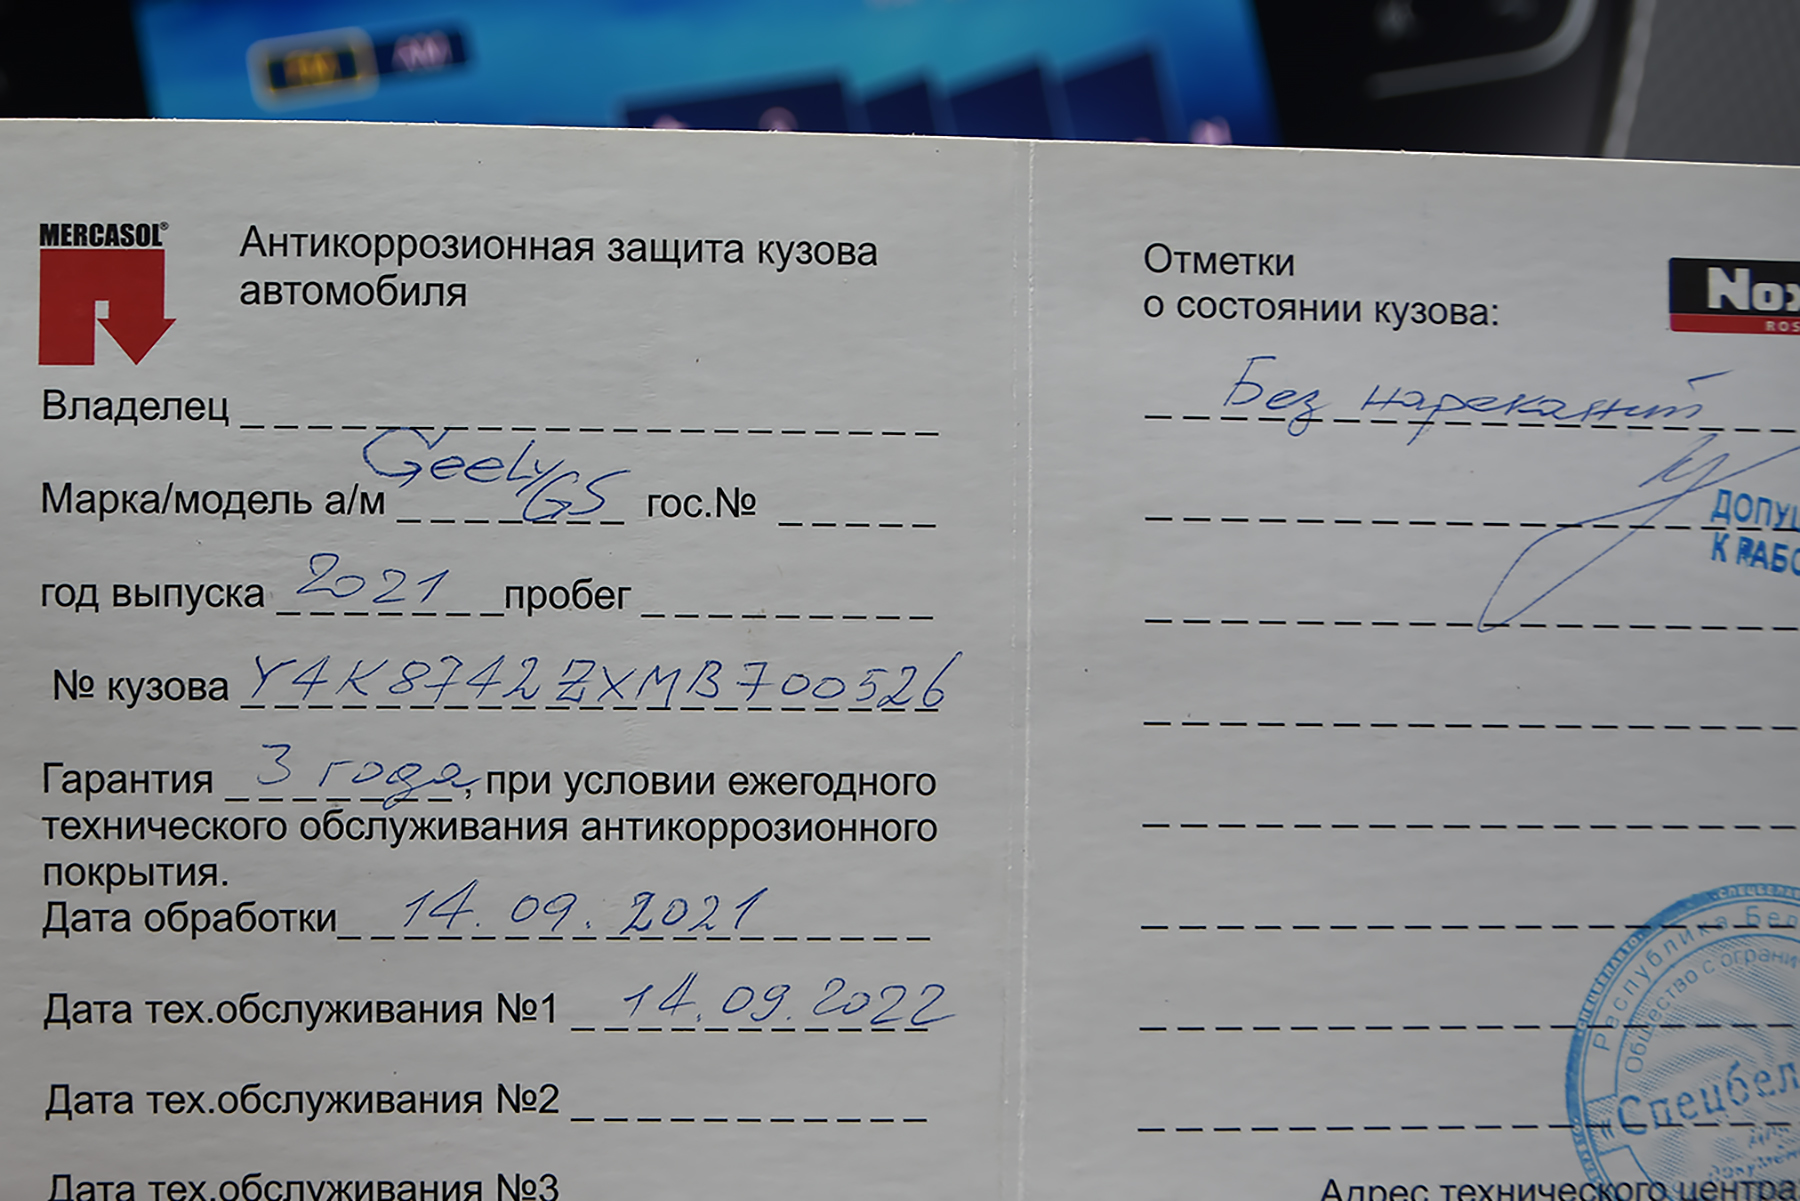 MERCASOL®
Антикоррозионная защита кузова
автомобиля
Владелец
Марка/модель а/м Geely GS гос.№
год выпуска 2021 пробег
№ кузова Y4K8742ZXMB700526
Гарантия 3 года, при условии ежегодного
технического обслуживания антикоррозионного
покрытия.
Дата обработки 14.09.2021
Дата тех.обслуживания №1 14.09.2022
Дата тех.обслуживания №2
Дата тех.обслуживания №3
Отметки
о состоянии кузова:
Nox
ROS
Без нареканий
ДОПУЩ
К РАБО
Республика Бел
Общество с ограни
«Спецбел
Адрес технического центра